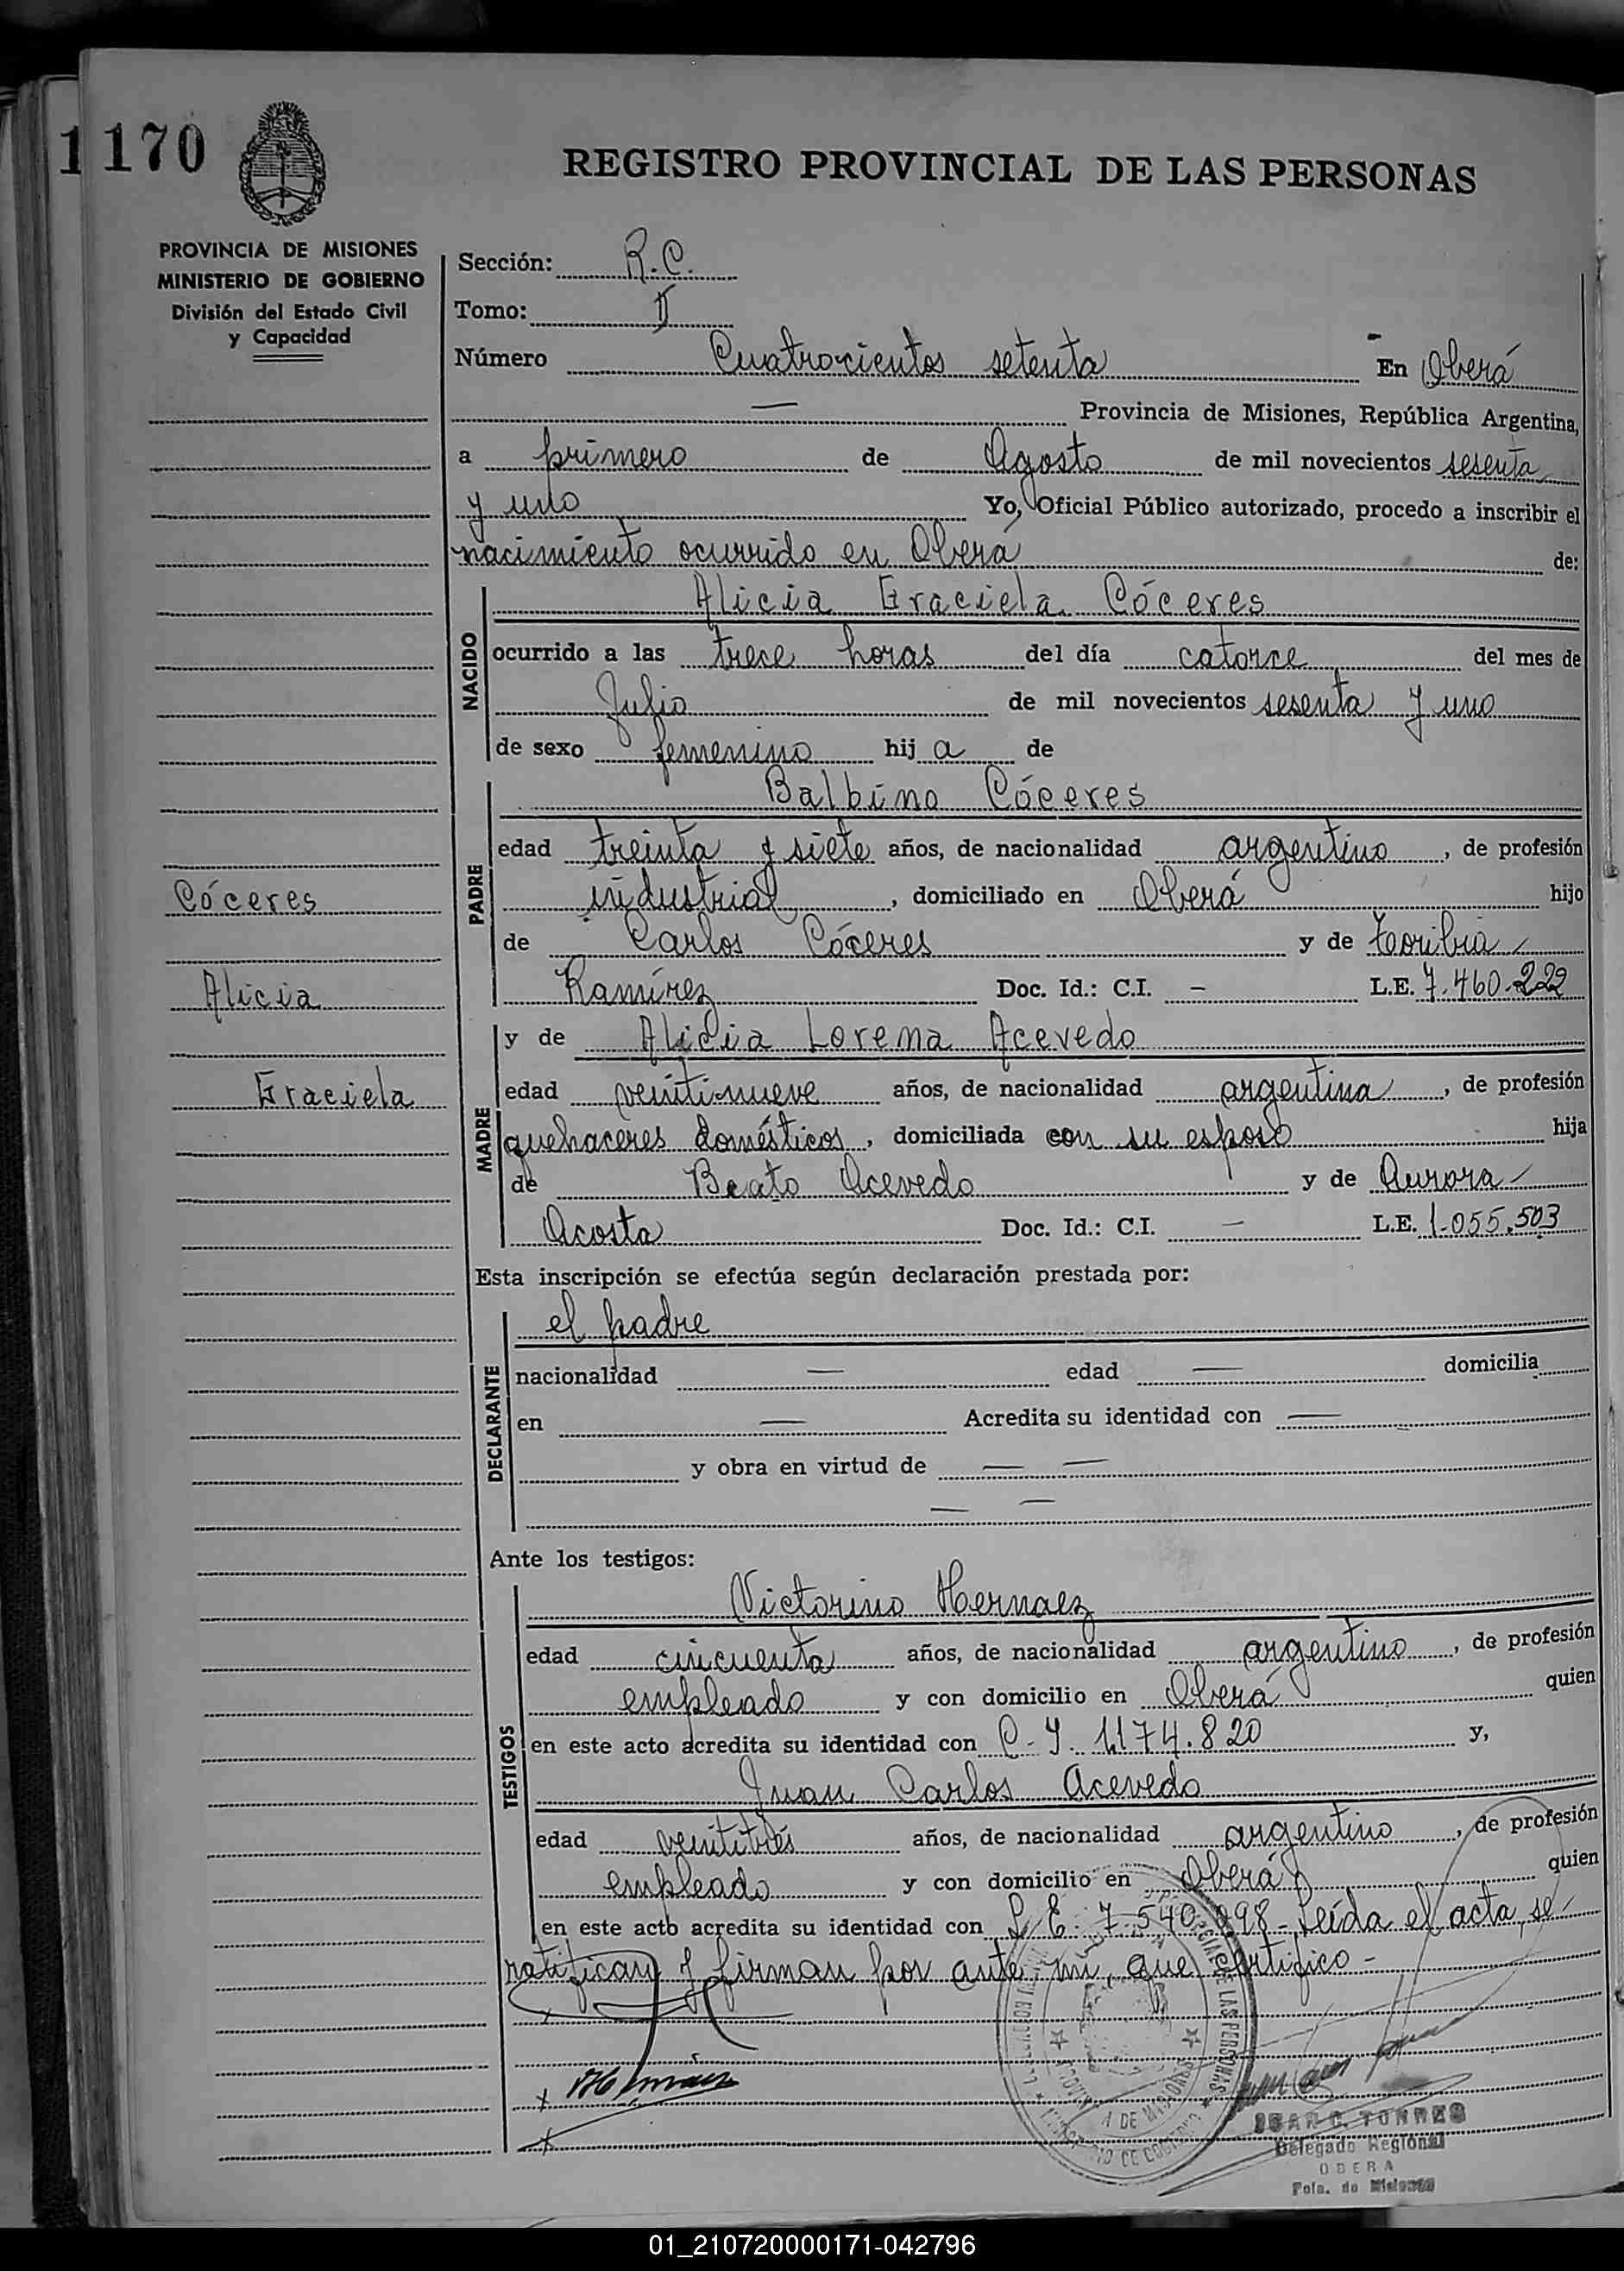 1170
REGISTRO PROVINCIAL DE LAS PERSONAS
PROVINCIA DE MISIONES
MINISTERIO DE GOBIERNO
División del Estado Civil
y Capacidad
Sección: R.C.
Tomo: II
Número Cuatrocientos setenta En Oberá
— Provincia de Misiones, República Argentina,
a primero de Agosto de mil novecientos sesenta
y uno Yo, Oficial Público autorizado, procedo a inscribir el
nacimiento ocurrido en Oberá de:
NACIDO
Alicia Graciela Cóceres
ocurrido a las trece horas del día catorce del mes de
Julio de mil novecientos sesenta y uno
de sexo femenino hija de
PADRE
Balbino Cóceres
edad treinta y siete años, de nacionalidad argentino, de profesión
industrial, domiciliado en Oberá hijo
de Carlos Cóceres y de Teoribia
Ramírez Doc. Id.: C.I. — L.E. 7.460.222
Cóceres
Alicia
Graciela
MADRE
y de Alicia Lorena Acevedo
edad veintinueve años, de nacionalidad argentina, de profesión
quehaceres domésticos, domiciliada con su esposo hija
de Beato Acevedo y de Aurora
Acosta Doc. Id.: C.I. — L.E. 1.055.503
Esta inscripción se efectúa según declaración prestada por:
DECLARANTE
el padre
nacionalidad — edad — domicilia
en — Acredita su identidad con —
y obra en virtud de — —
— —
Ante los testigos:
TESTIGOS
Victorino Hernaez
edad cincuenta años, de nacionalidad argentino, de profesión
empleado y con domicilio en Oberá quien
en este acto acredita su identidad con C.I. 1.174.820 y,
Juan Carlos Acevedo
edad veintitrés años, de nacionalidad argentino, de profesión
empleado y con domicilio en Oberá quien
en este acto acredita su identidad con L.E. 7.540.998- Leída el acta, se
ratifican y firman por ante mi, que certifico-
JUAN C. TORRES
Delegado Regional
OBERA
Pcia. de Misiones
01_210720000171-042796